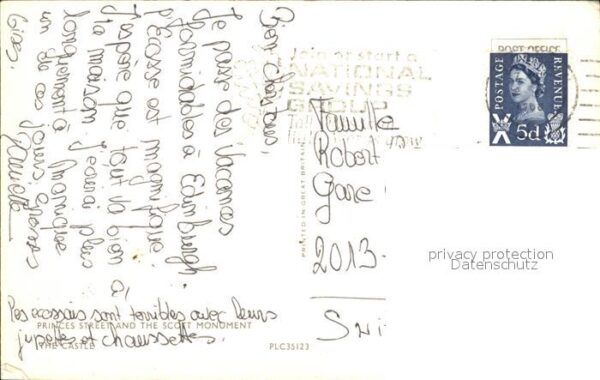 Bien chers tous,
Je passe des vacances
formidables à Edimburgh.
l'Ecosse est magnifique.
J'espère que tout va bien à
la maison. J'écrirai plus
longuement à Monique
un de ces jours. Grosses
bises.
Danielle
Les ecossais sont terribles avec leurs
jupettes et chaussettes.
PRINCES STREET AND THE SCOTT MONUMENT
THE CASTLE
PLC35123
PRINTED IN GREAT BRITAIN
Join or start a
NATIONAL
SAVINGS
GROUP
POST OFFICE
POSTAGE
REVENUE
5d
Famille
Robert
Gare
2013
privacy protection
Datenschutz